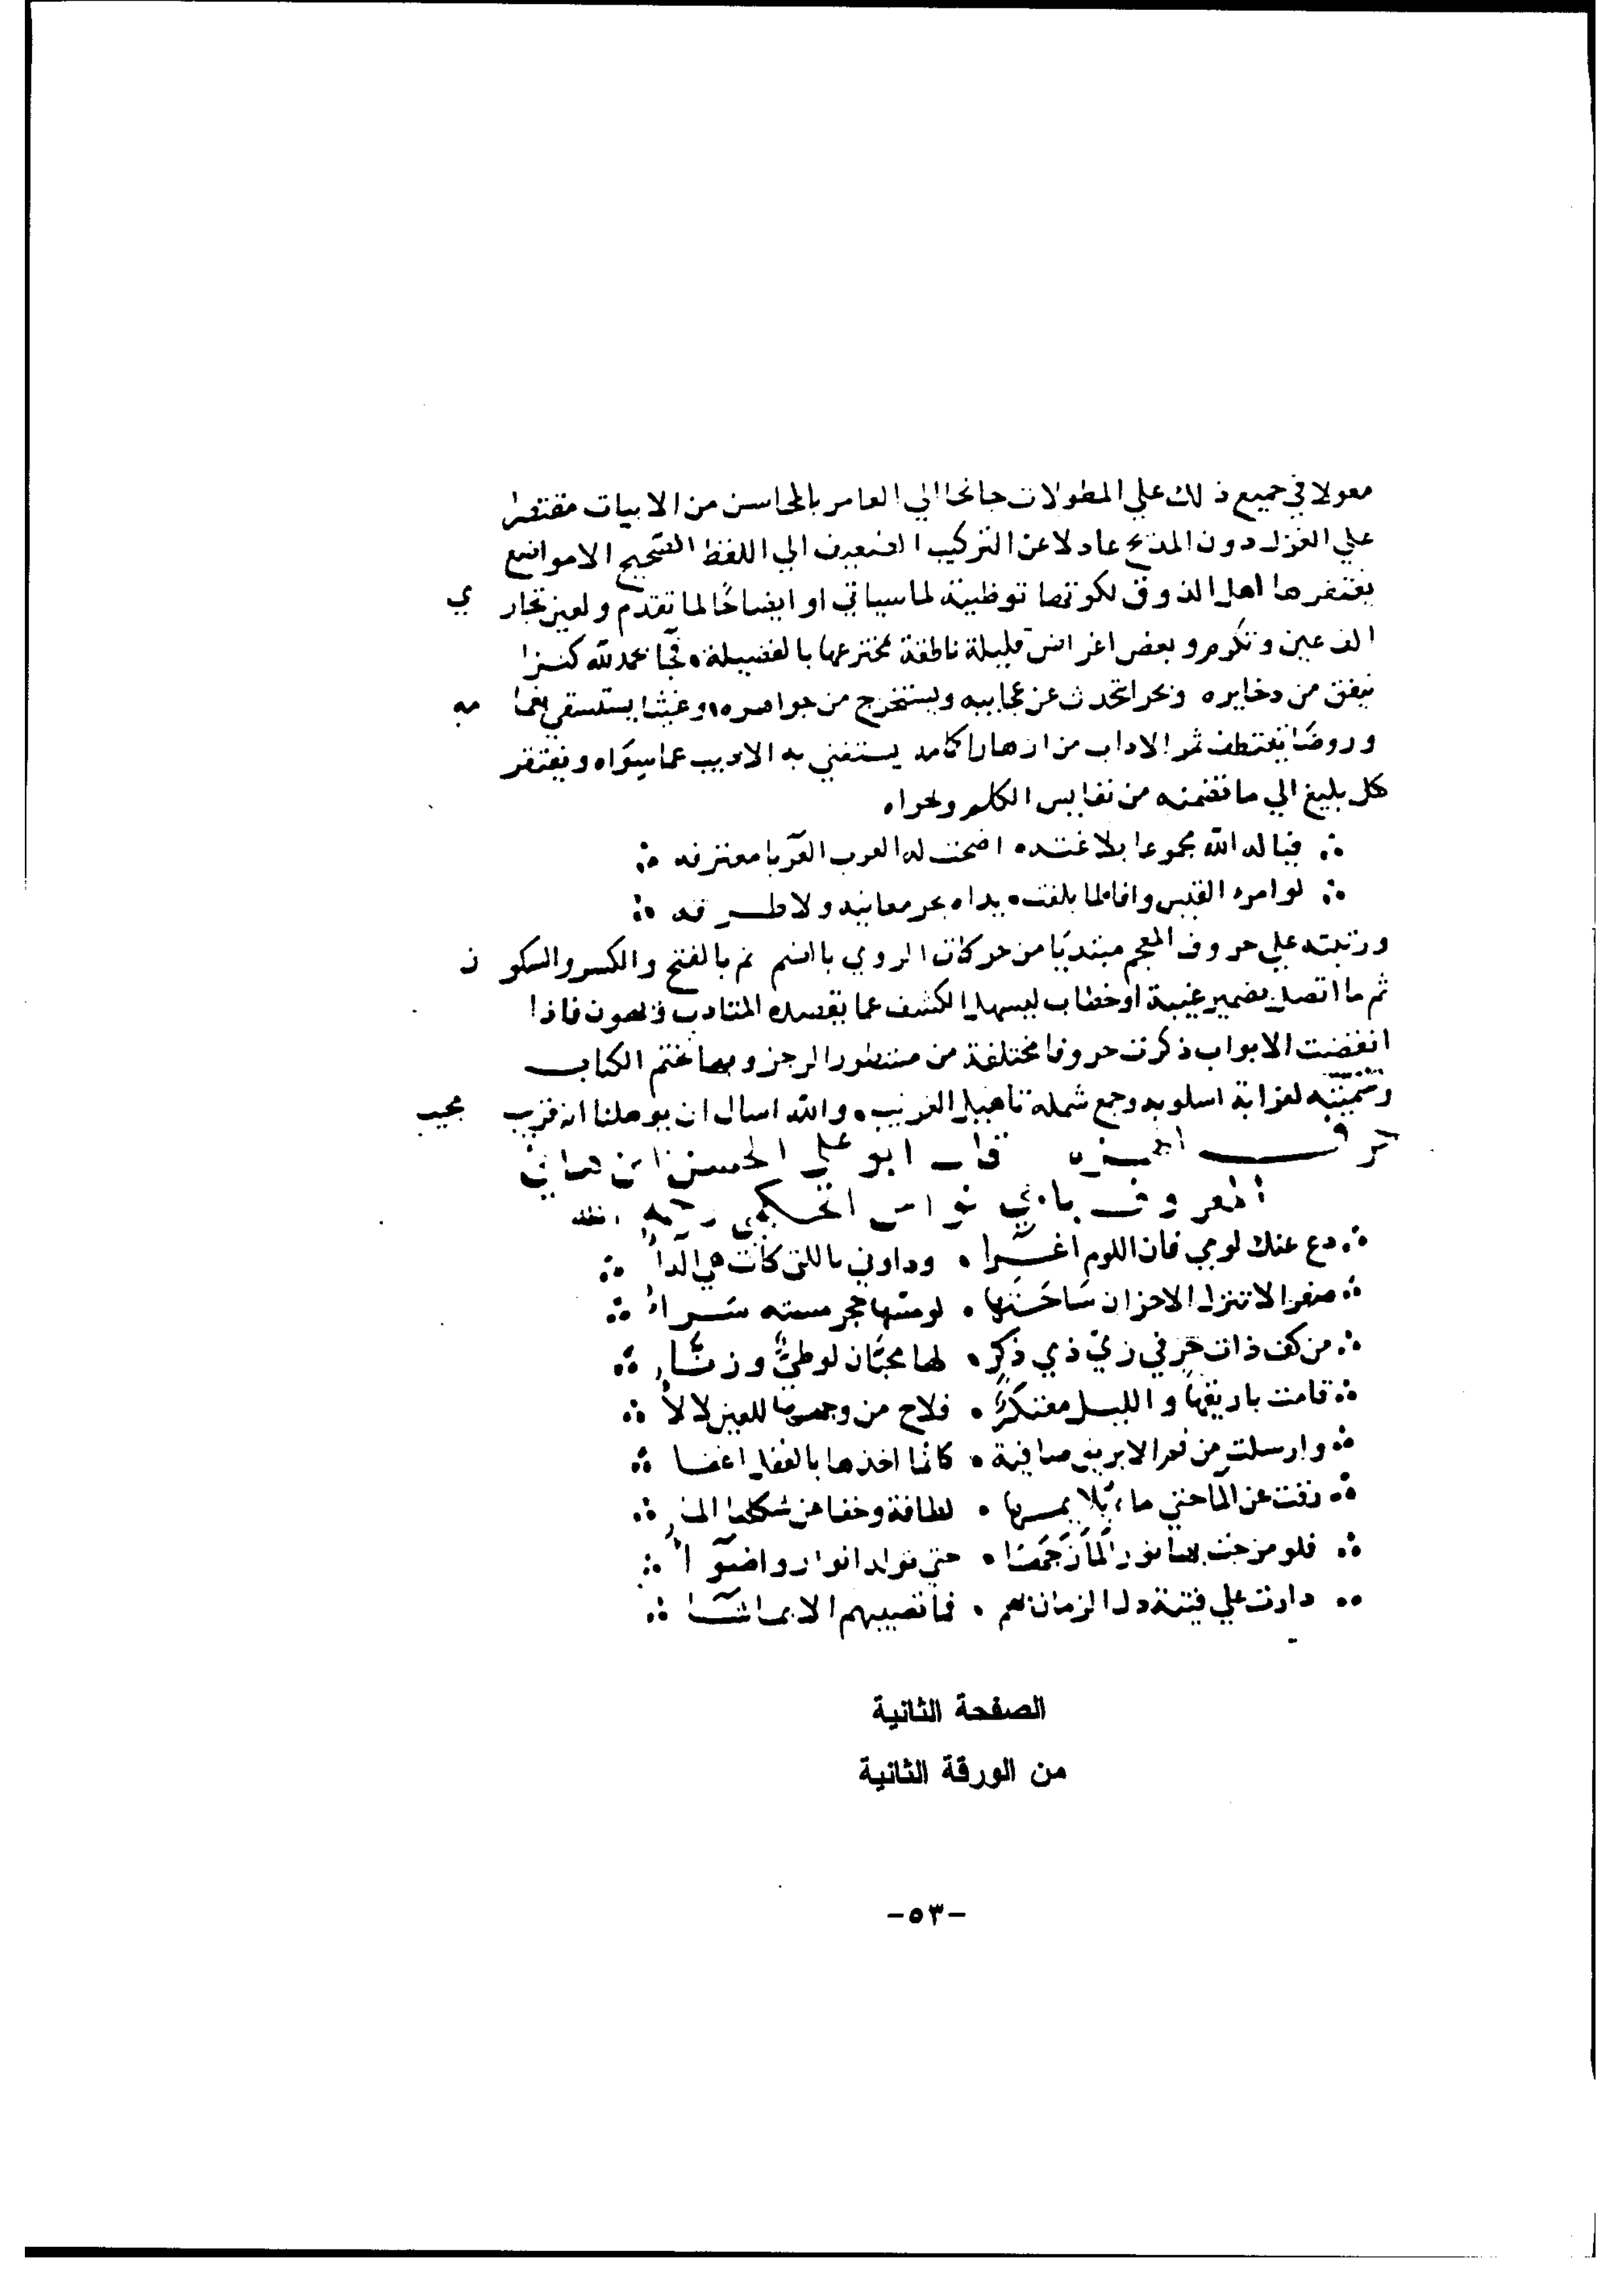 معولا في جميع ذلك علي المطولات جانحا الي العامر بالمحاسن من الابيات مقتصرا
علي الغزل دون المدح عادلا عن التركيب الضعيف الي اللفظ الصحيح الا مواضع
يغتفرها اهل الذوق لكونها توطية لما سياتي او ايضاحا لما تقدم ولعين تجاري
الف عين وتكرم وبعض اغراض قليلة ناطقة لمخترعها بالفضيلة، فجا بحمد لله كنزا
ينفق من دخايره وبحرا يتحدث عن عجايبه ويستخرج من جواهره، وغيثا يستسقي
وروضا يقتطف ثمر الاداب من ازهار يستغني به الاديب عما سواه ويفتقر
كل بليغ الي ما تضمنه من نفايس الكلم وحواه
∴ فيا له الله مجموعا بلاغته، اضحت له العرب العربا معترفه ∴
∴ لو امرء القيس وافا لما بلغت، يداه بحر معانيه ولا طرفه ∴
ورتبته علي حروف المعجم مبتديا من حركات الروي بالضم ثم بالفتح والكسر والسكون
ثم ما اتصل بضمير غيبة او خطاب ليسهل الكشف عما يقصده المتادب فاذا
انقضت الابواب ذكرت حروفا مختلفة من مشطور الرجز وبها نختم الكتاب
وسميته لغرابة اسلوبه وجمع شمله تاهيل الغريب، والله اسال ان يوهلنا انه قريب مجيب
حرف الهمزه قال ابو علي الحسن ابن هاني
المعروف بابي نواس الحكمي رحمه الله
∴ دع عنك لومي فان اللوم اغرا، وداوني باللتي كانت هي الدآءُ ∴
∴ صفرا لا تنزل الاحزان ساحتها، لو مسها حجر مسته سراءُ ∴
∴ من كف ذات حر في زي ذي ذكر، لها محبان لوطي وزناء ∴
∴ قامت بابريقها والليل معتكر، فلاح من وجهها للعين لالا ∴
∴ وارسلت من فم الابريق صافية، كانما اخذها بالعقل اغفا ∴
∴ رقت عن المآ حتي ما يلايمها، لطافة وجفا عن شكلها الما ∴
∴ فلو مزجت بها نور لمازجها، حتي تولد انوار واضوآ ∴
∴ دارت علي فتية دل الزمان لهم، فما تصيبهم الا بما شآا ∴
الصفحة الثانية
من الورقة الثانية
-٥٣-